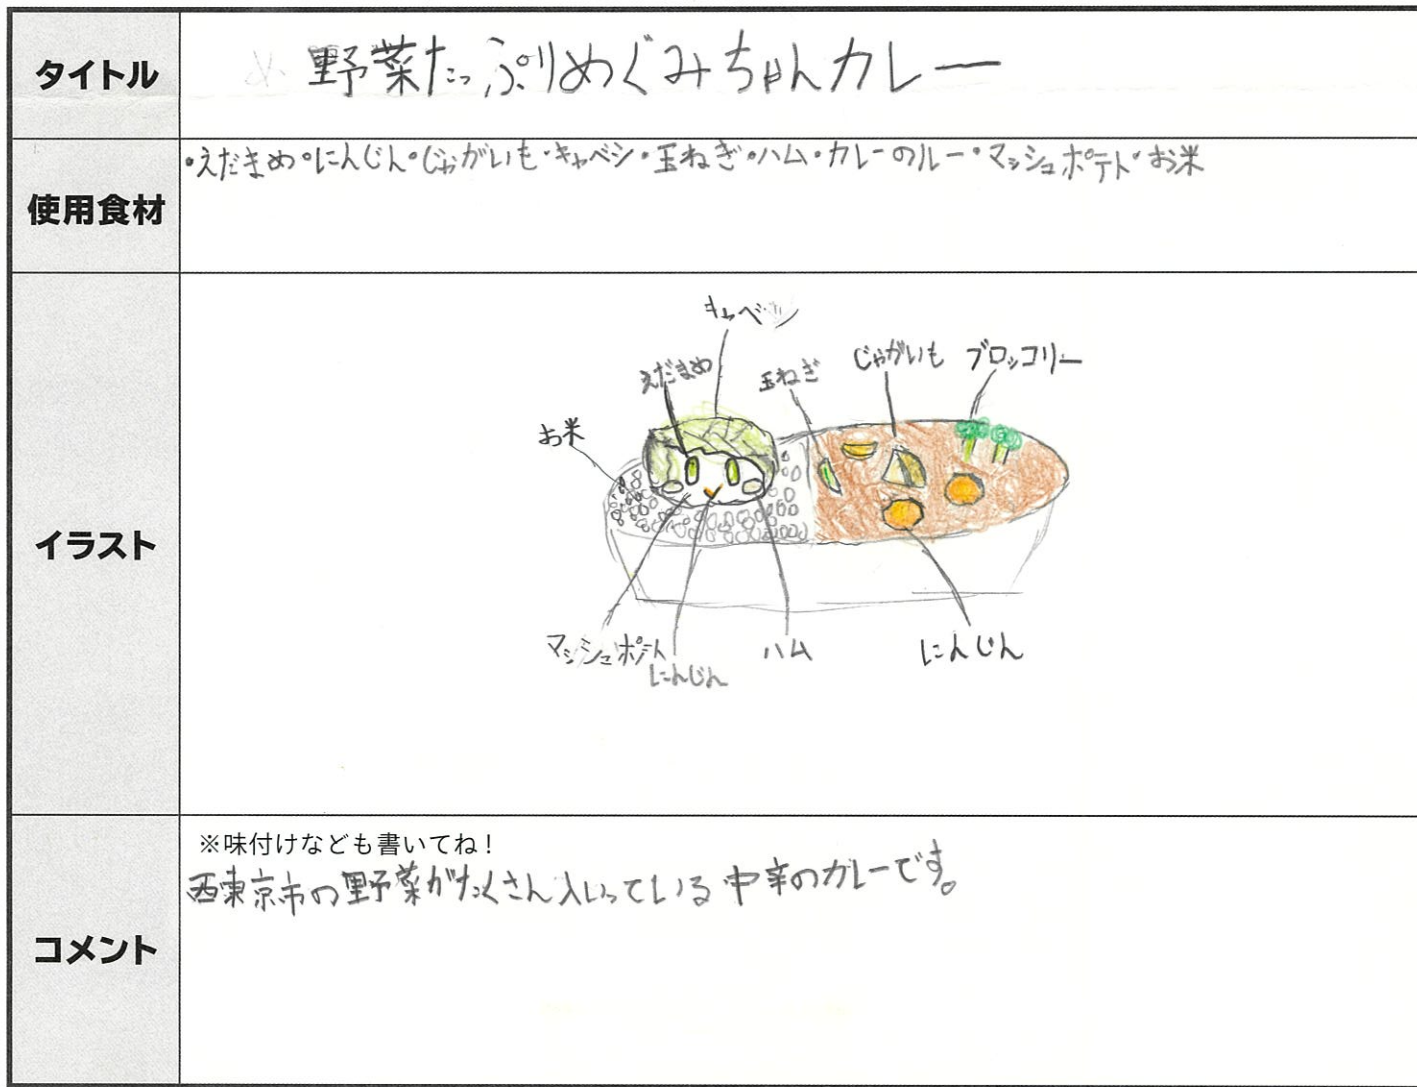 タイトル
野菜たっぷりめぐみちゃんカレー
使用食材
・えだまめ・にんじん・じゃがいも・キャベシ・玉ねぎ・ハム・カレーのルー・マッシュポテト・お米
イラスト
キャベツ
えだまめ
玉ねぎ
じゃがいも
ブロッコリー
お米
マッシュポテト
にんじん
ハム
にんじん
コメント
※味付けなども書いてね!
西東京市の野菜がたくさん入いっている中辛のカレーです。